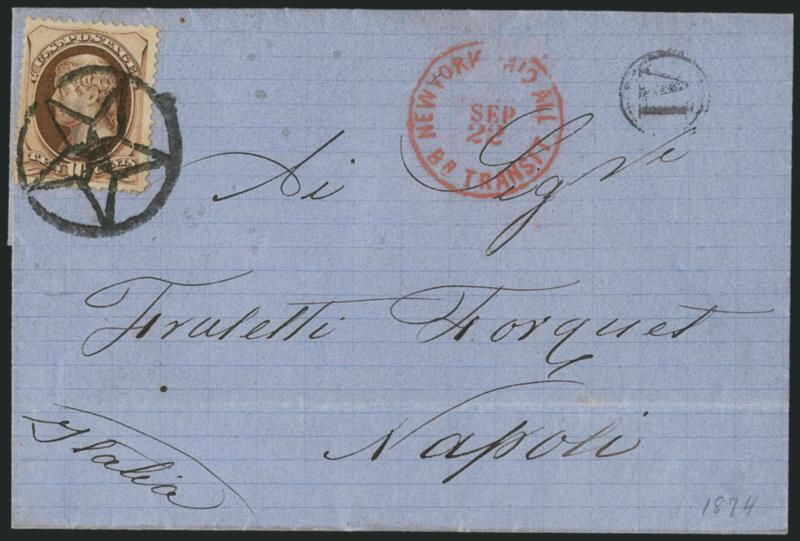 U.S. POSTAGE
TEN 10 CENTS
NEW YORK PAID ALL
SEP
22
BR TRANSIT
Ai Sigri
Fratelli Forquet
Napoli
Italia
1874